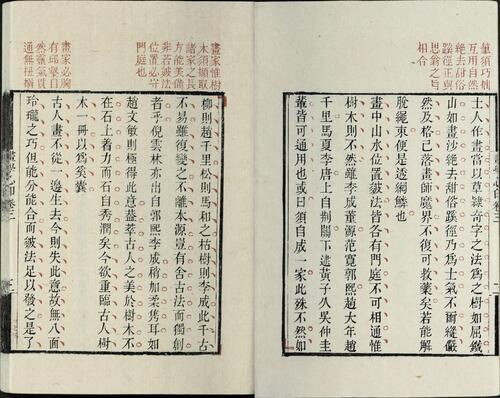 筆須巧拙
互用自然
絶去甜俗
蹊徑正與
思翁之旨
相合
士人作畫當以草隸奇字之法為之樹如屈鐵
山如畫沙絶去甜俗蹊徑乃為士氣不爾縱儼
然及格已落畫師魔界不復可救藥矣若能解
脫繩束便是透網鱗也
畫中山水位置皴法皆各有門庭不可相通惟
樹木則不然雖李成董源范寛郭熙趙大年趙
千里馬夏李唐上自荆關下逮黃子久吳仲圭
輩皆可通用也或曰須自成一家此殊不然如
畫家惟樹
木須擷取
諸家之長
方能美備
非若皴法
位置必守
門庭也
柳則趙千里松則馬和之枯樹則李成此千古
不易雖復變之不離本源豈有舍古法而獨創
者乎倪雲林亦出自郭熙李成稍加柔雋耳如
趙文敏則極得此意蓋萃古人之美於樹木不
在石上着力而石自秀潤矣今欲重臨古人樹
木一冊以為奚囊
畫家必胸
有邱壑目
然靈氣貫
通無扭揑
古人畫不從一邊生去今則失此意故無八面
玲瓏之巧但能分能合而皴法足以發之是了
卷三
三